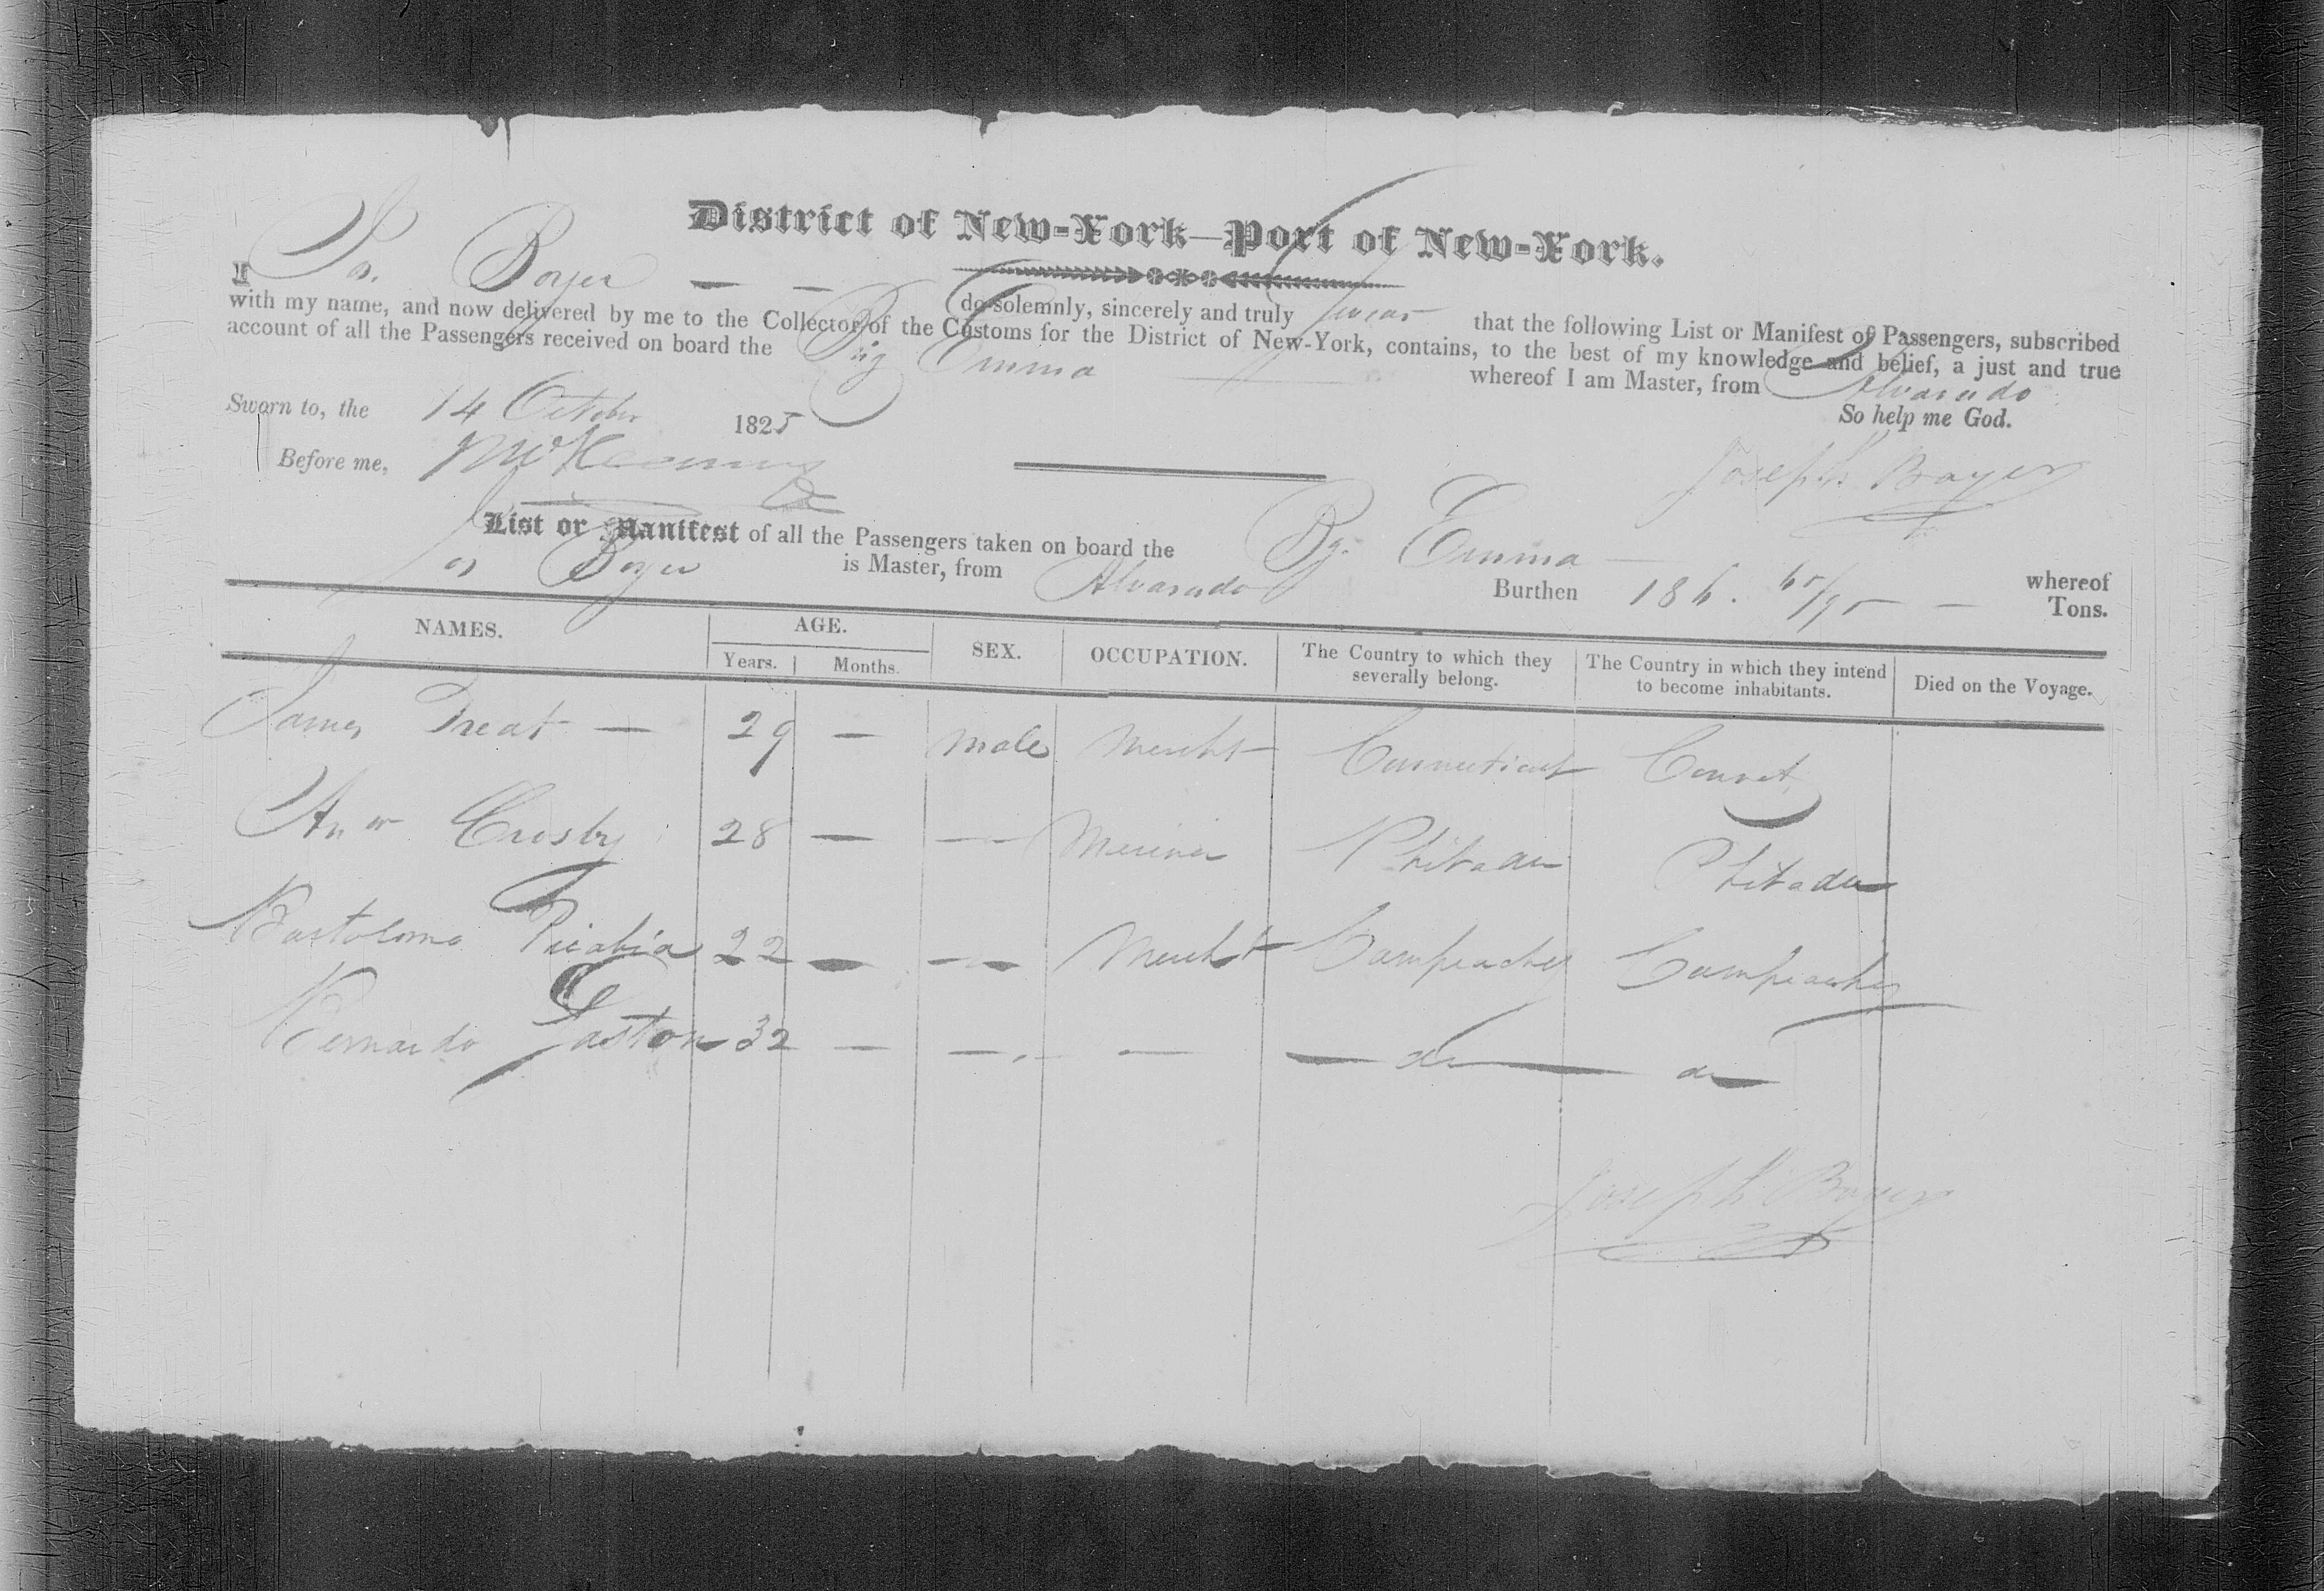 District of New-York—Port of New-York.
I Jos. Boyer — — do solemnly, sincerely and truly swear that the following List or Manifest of Passengers, subscribed
with my name, and now delivered by me to the Collector of the Customs for the District of New-York, contains, to the best of my knowledge and belief, a just and true
account of all the Passengers received on board the Brig Emma — whereof I am Master, from Alvarado
So help me God.
Sworn to, the 14 October 1825
Before me,
Joseph Boyer
List or Manifest of all the Passengers taken on board the Bg. Emma — whereof
Jos Boyer is Master, from Alvarado Burthen 186. Tons.
NAMES. AGE. SEX. OCCUPATION. The Country to which they severally belong. The Country in which they intend to become inhabitants. Died on the Voyage.
Years. Months.
James Treat — 29 — male Mercht Connecticut Connct
Anw Crosby 28 — — Mariner Philada Philada
Bartolome 22 — — Mercht Campeachy Campeachy
Bernardo Gaston 32 — — — do do
Joseph Boyer